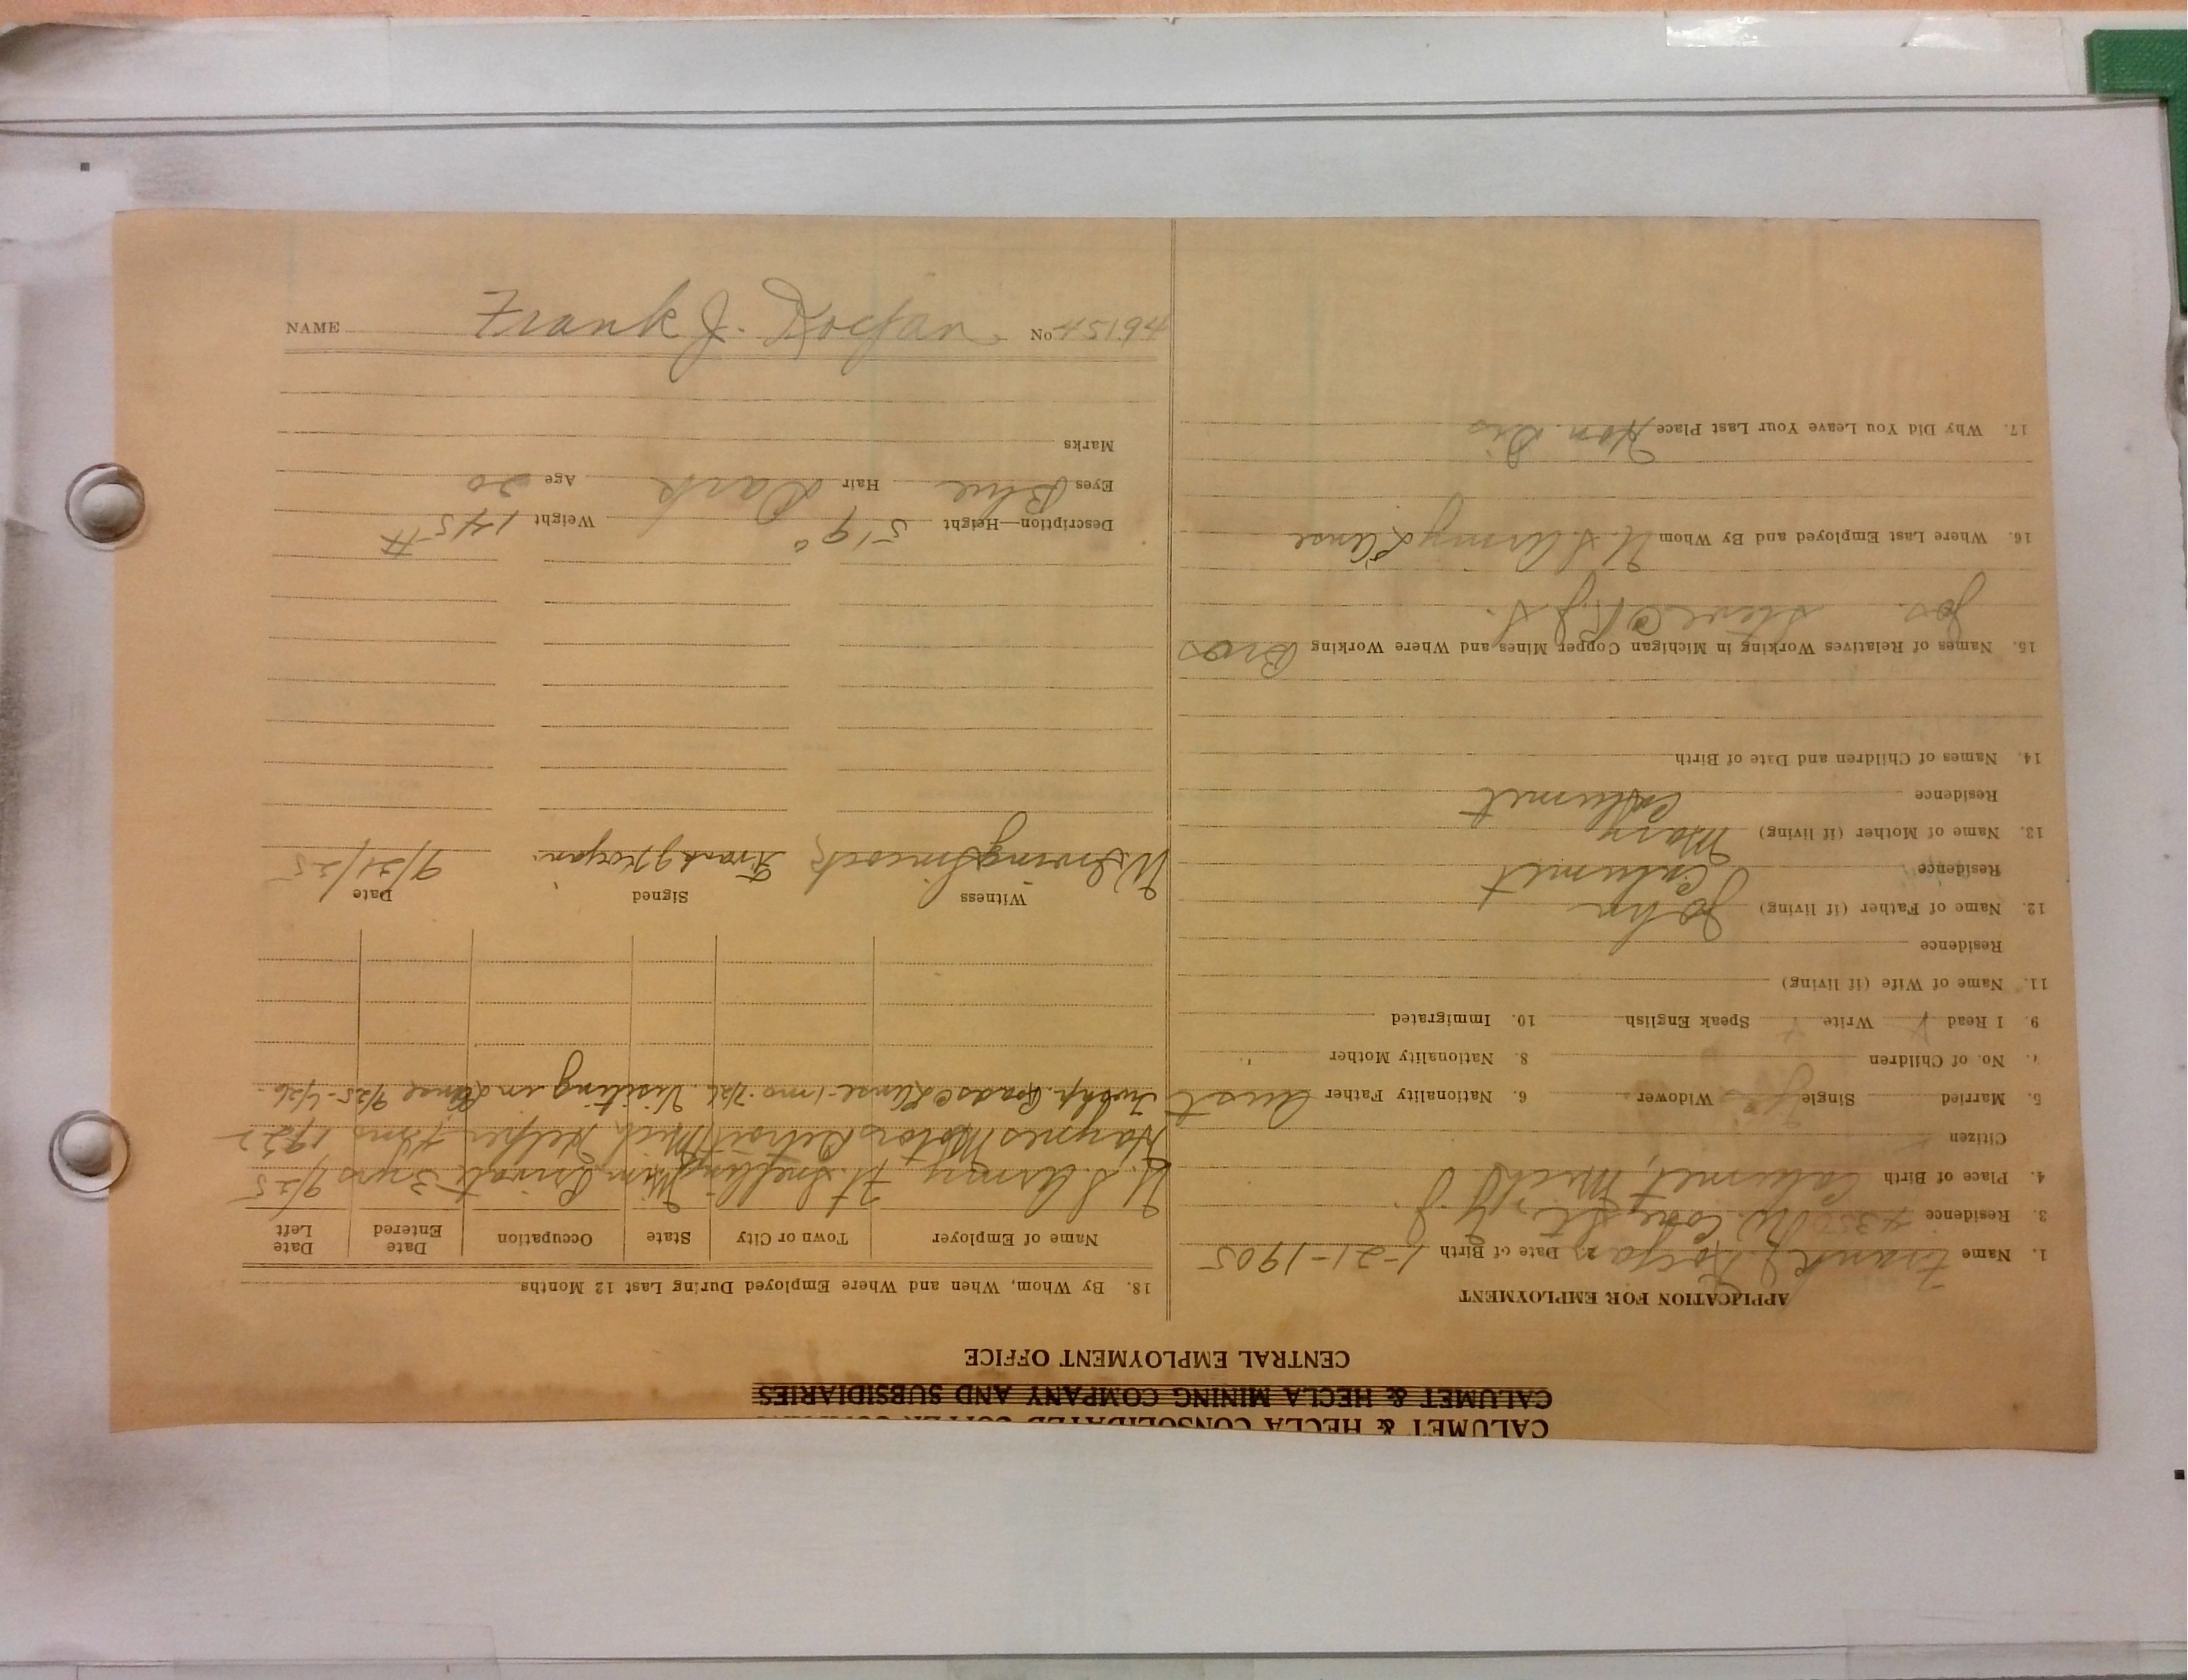 CALUMET & HECLA CONSOLIDATED COPPER
CALUMET & HECLA MINING COMPANY AND SUBSIDIARIES
CENTRAL EMPLOYMENT OFFICE
APPLICATION FOR EMPLOYMENT
1. Name Frank J. Kocjan 2. Date of Birth 1-21-1905
3. Residence 4350 W. Cone St., Y. J.
4. Place of Birth Calumet, Mich
Citizen
5. Married Single Yes Widower 6. Nationality Father Aust
7. No. of Children 8. Nationality Mother "
9. I Read Write Speak English 10. Immigrated
11. Name of Wife (if living)
Residence
12. Name of Father (if living) John
Residence Calumet
13. Name of Mother (if living) Mary
Residence Calumet
14. Names of Children and Date of Birth
15. Names of Relatives Working in Michigan Copper Mines and Where Working Bros
Jos. Steve
16. Where Last Employed and By Whom U.S. Army L'Anse
17. Why Did You Leave Your Last Place Hon. Dis
18. By Whom, When and Where Employed During Last 12 Months
Name of Employer Town or City State Occupation Date Entered Date Left
U.S. Army Ft. Snelling Minn Private 3 yrs 9/25
Haynes Motors Detroit Mich Helper 1922
Twshp. Roads L'Anse - 1 mo. Visiting in L'Anse 9/25 - 4/26.
Witness Signed Date
W. Irving Simcock Frank J Kocjan. 9/21/25
Description—Height 5' 9" Weight 145 #
Eyes Blue Hair Dark Age 20
Marks
NAME Frank J. Kocjan. No 45194